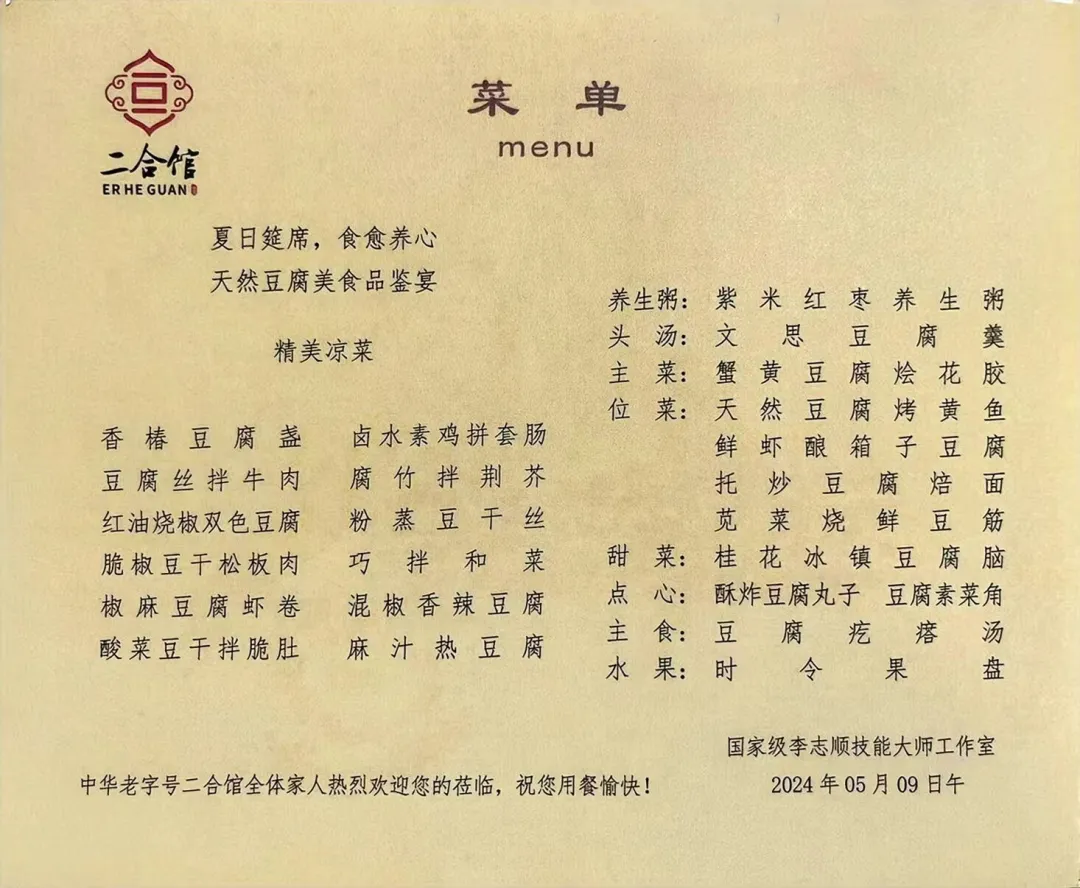 二合馆
ER HE GUAN
菜单
menu
夏日筵席，食愈养心
天然豆腐美食品鉴宴
精美凉菜
香椿豆腐盏 卤水素鸡拼套肠
豆腐丝拌牛肉 腐竹拌荆芥
红油烧椒双色豆腐 粉蒸豆干丝
脆椒豆干松板肉 巧拌和菜
椒麻豆腐虾卷 混椒香辣豆腐
酸菜豆干拌脆肚 麻汁热豆腐
养生粥：紫米红枣养生粥
头汤：文思豆腐羹
主菜：蟹黄豆腐烩花胶
位菜：天然豆腐烤黄鱼
鲜虾酿箱子豆腐
托炒豆腐焙面
苋菜烧鲜豆筋
甜菜：桂花冰镇豆腐脑
点心：酥炸豆腐丸子 豆腐素菜角
主食：豆腐疙瘩汤
水果：时令果盘
国家级李志顺技能大师工作室
2024年05月09日午
中华老字号二合馆全体家人热烈欢迎您的莅临，祝您用餐愉快！